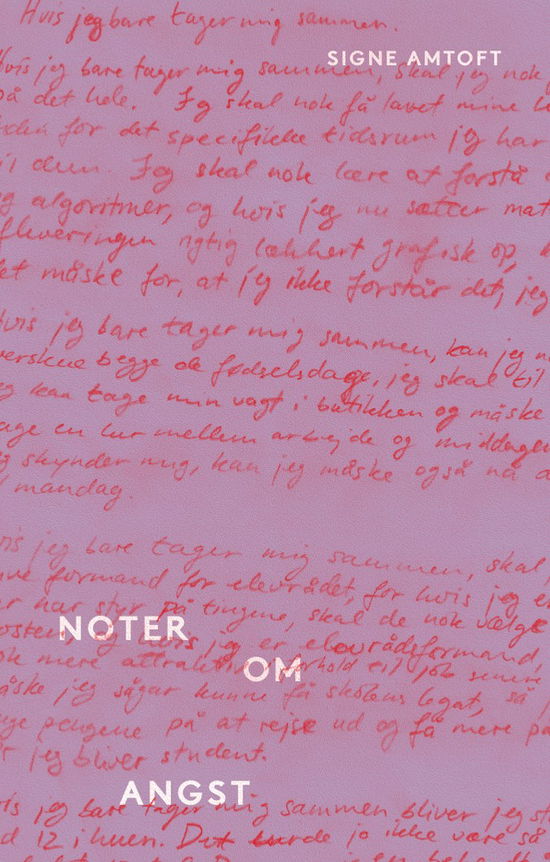 Hvis jeg bare tager mig sammen.
SIGNE AMTOFT
Hvis jeg bare tager mig sammen, skal jeg nok
på det hele. Jeg skal nok få lavet mine
inden for det specifikke tidsrum jeg har
til dem. Jeg skal nok lære at forstå
og algoritmer, og hvis jeg nu sætter mat
afleveringen rigtig lækkert grafisk op,
det måske for, at jeg ikke forstår det, jeg
Hvis jeg bare tager mig sammen, kan jeg
overskue begge de fødselsdage, jeg skal til
jeg kan tage min vagt i butikken og måske
tage en lur mellem arbejde og middagen
jeg skynder mig, kan jeg måske også nå
mandag.
Hvis jeg bare tager mig sammen, skal
formand for elevrådet, for hvis jeg
har styr på tingene, skal de nok vælge
NOTER
og hvis jeg er elevrådsformand,
OM
nok mere attraktiv i forhold til job senere
måske jeg sågar kunne få skolens legat, så
pengene på at rejse ud og få mere
jeg bliver student.
ANGST
Hvis jeg bare tager mig sammen bliver jeg
12 i huen. Det burde jo ikke være så